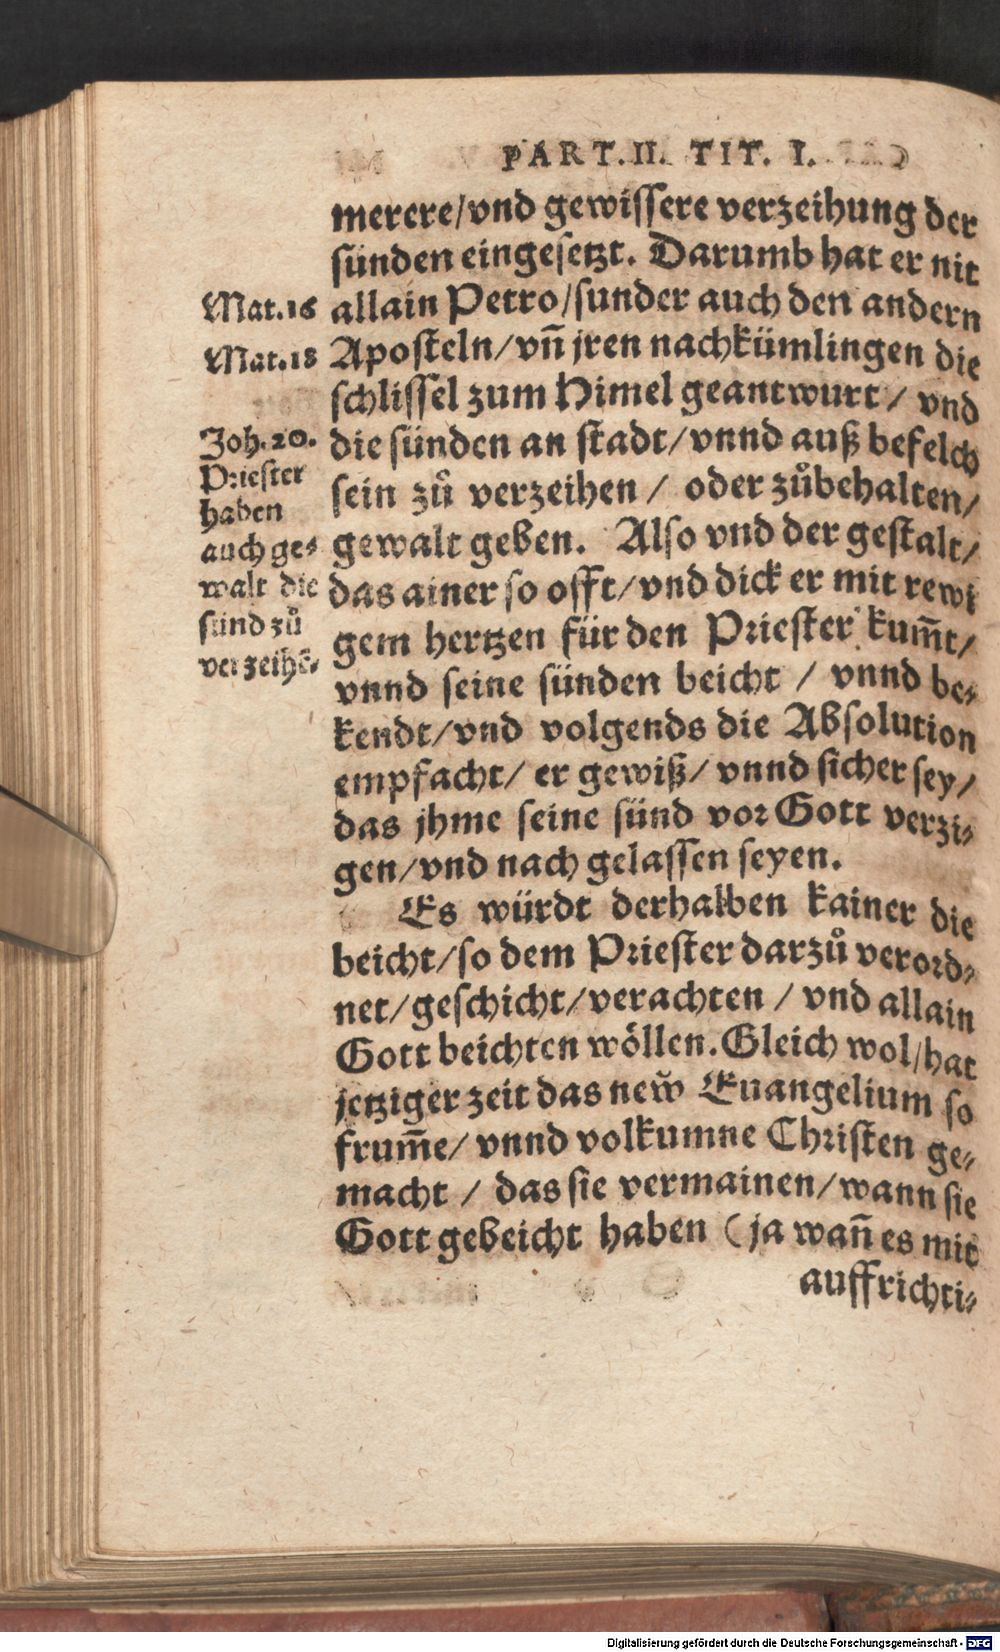 PART. II. TIT. I.
merere/vnd gewissere verzeihung der
sünden eingesetzt. Darumb hat er nit
Mat.16
allain Petro/sunder auch den andern
Mat.18
Aposteln/vñ jren nachkümlingen die
schlissel zum Himel geantwurt/ vnd
die sünden an stadt/vnnd auß befelch
sein zů verzeihen/ oder zůbehalten/
gewalt geben. Also vnd der gestalt/
das ainer so offt/vnd dick er mit rewi
gem hertzen für den Priester kum̃t/
vnnd seine sünden beicht / vnnd be-
kendt/vnd volgends die Absolution
empfacht/ er gewiß/ vnnd sicher sey/
das jhme seine sünd vor Gott verzi-
gen/vnd nach gelassen seyen.
Joh.20.
Priester
haben
auch ge-
walt die
sünd zů
verzeihẽ-
Es würdt derhalben kainer die
beicht/so dem Priester darzů verord-
net/geschicht/verachten / vnd allain
Gott beichten wöllen. Gleich wol/hat
jetziger zeit das new̃ Euangelium so
frum̃e/ vnnd volkumne Christen ge-
macht / das sie vermainen/wann sie
Gott gebeicht haben (ja wañ es mit
auffrichti-
Digitalisierung gefördert durch die Deutsche Forschungsgemeinschaft - DFG